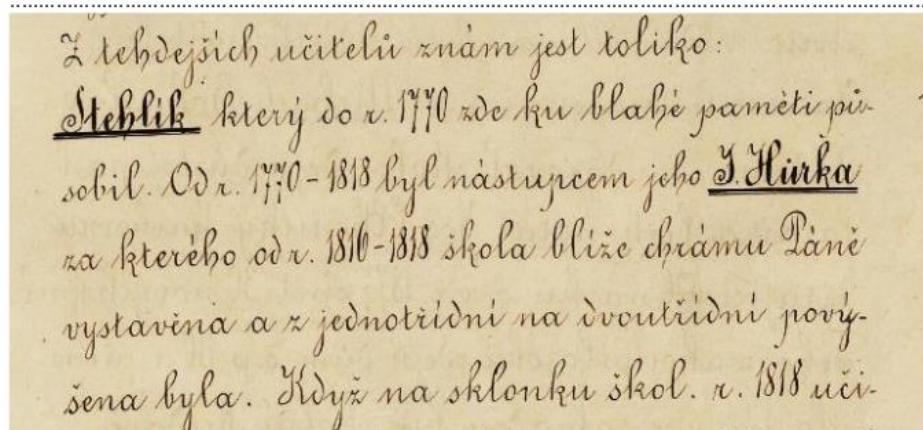 Z tehdejších učitelů znám jest toliko:
Stehlík který do r. 1770 zde ku blahé paměti pů-
sobil. Od r. 1770-1818 byl nástupcem jeho J. Hůrka
za kterého od r. 1816-1818 škola blíže chrámu Páně
vystavěna a z jednotřídní na dvoutřídní pový-
šena byla. Když na sklonku škol. r. 1818 uči-